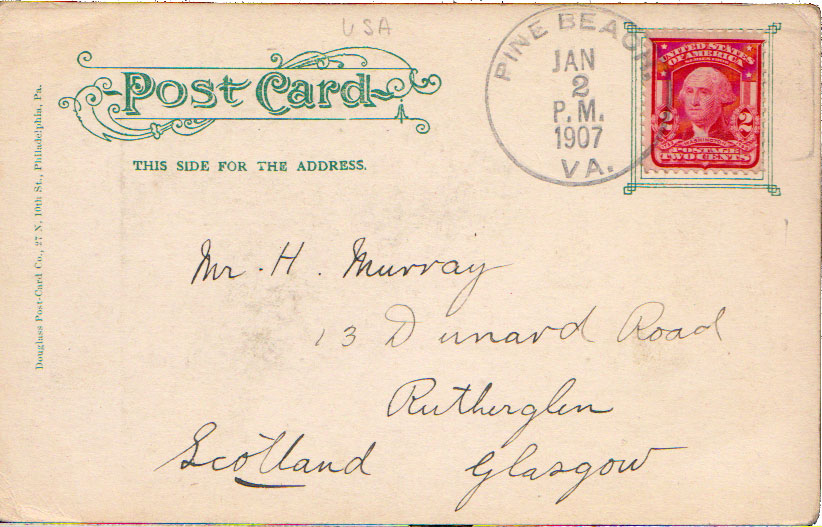 USA
Post Card
THIS SIDE FOR THE ADDRESS.
PINE BEACH,
JAN
2
P.M.
1907
VA.
UNITED STATES
OF AMERICA
2 2
POSTAGE
TWO CENTS
Douglass Post-Card Co., 27 N. 10th St., Philadelphia, Pa.
Mr. H. Murray
13 Dunard Road
Rutherglen
Scotland Glasgow